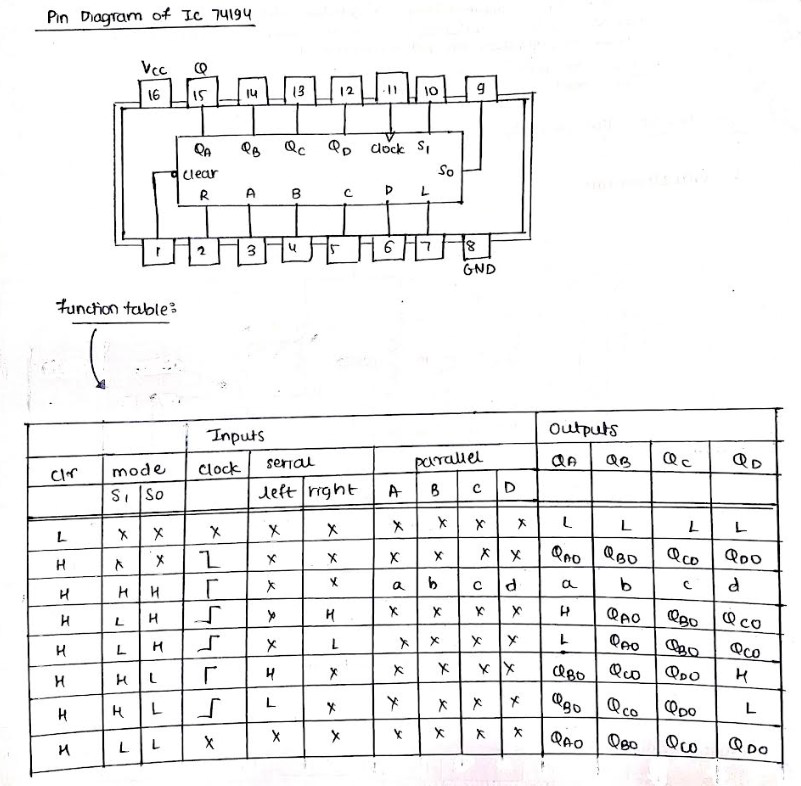 Pin Diagram of Ic 74194
Vcc Q
16 15 14 13 12 11 10 9
QA QB QC QD clock S1
clear S0
R A B C D L
1 2 3 4 5 6 7 8
GND
Function table:
Inputs Outputs
Clr mode clock serial parallel QA QB QC QD
S1 S0 left right A B C D
L X X X X X X X X X L L L L
H X X X X X X X X QA0 QB0 QC0 QD0
H H H X X a b c d a b c d
H L H X H X X X X H QA0 QB0 QC0
H L H X L X X X X L QA0 QB0 QC0
H H L H X X X X X QB0 QC0 QD0 H
H H L L X X X X X QB0 QC0 QD0 L
H L L X X X X X X X QA0 QB0 QC0 QD0